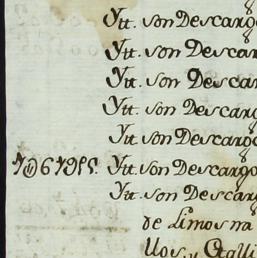 Ytt. son Descarg
Ytt. son Descar
Ytt. son Descar
Ytt. son Descarg
Ytt. son Descar
Ytt. son Descargo
Ytt. son Descarg
de Limosna
llos, y